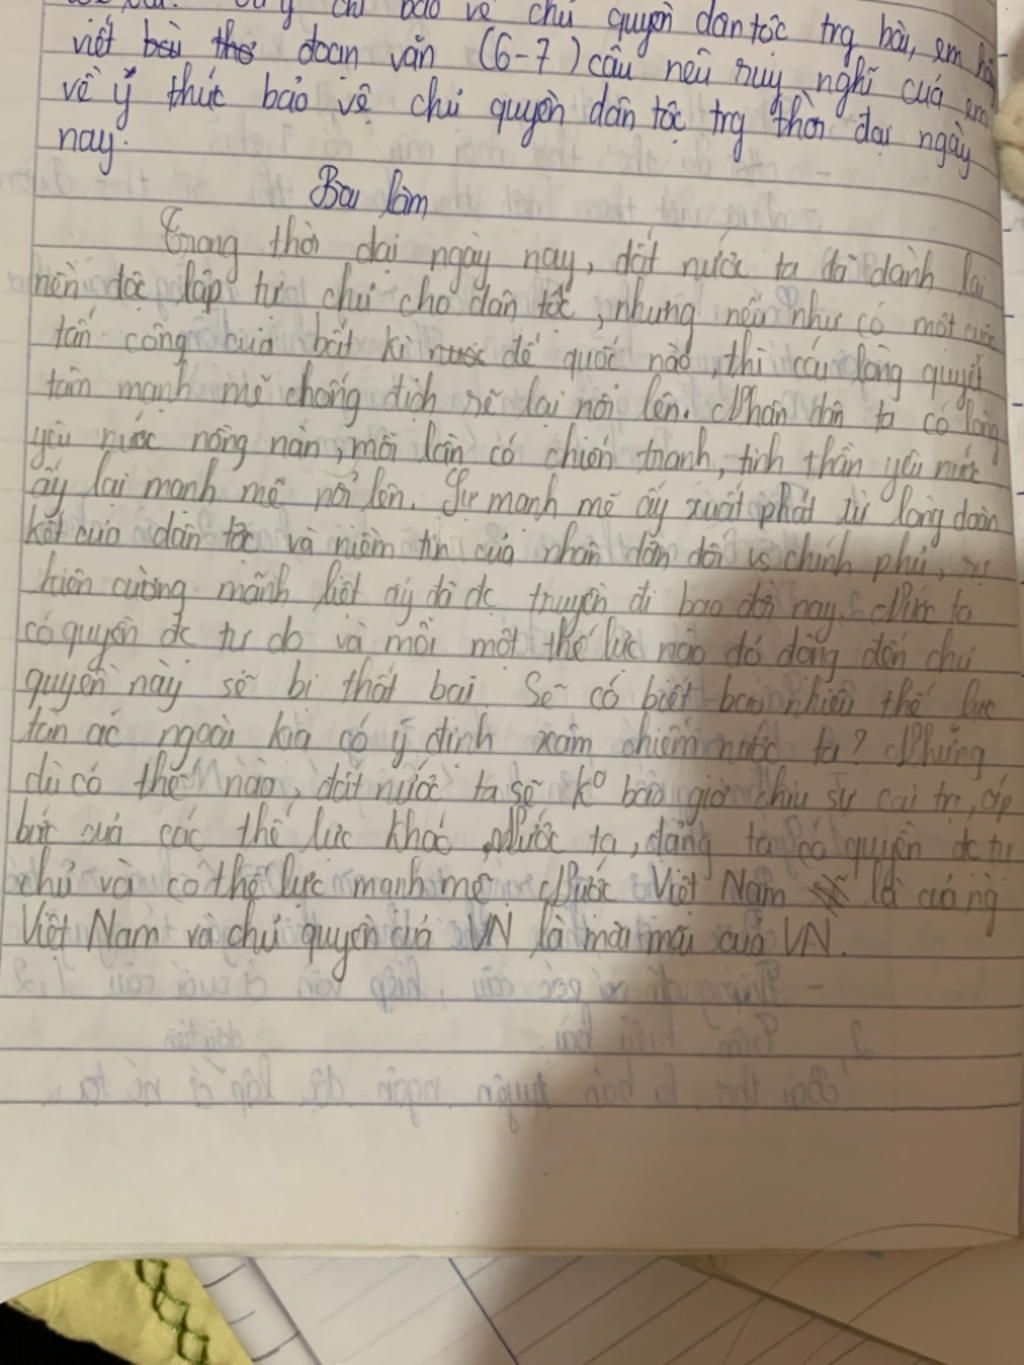 ý chí bảo vệ chủ quyền dân tộc trg bài, em hãy
viết bài thơ đoạn văn (6-7) câu nêu suy nghĩ của em
về ý thức bảo vệ chủ quyền dân tộc trg thời đại ngày
nay.
Bài làm
Trong thời đại ngày nay, đất nước ta đã dành lại
nền độc lập tự chủ cho dân tộc, nhưng nếu như có một cuộc
tấn công của bất kì nước đế quốc nào, thì cái lòng quyết
tâm mạnh mẽ chống địch sẽ lại nổi lên. Nhân dân ta có lòng
yêu nước nồng nàn, mỗi lần có chiến tranh, tinh thần yêu nước
ấy lại mạnh mẽ nổi lên. Sự mạnh mẽ ấy xuất phát từ lòng đoàn
kết của dân tộc và niềm tin của nhân dân đối vs chính phủ, sự
kiên cường mãnh liệt ấy đã đc truyền đi bao đời nay. Nước ta
có quyền đc tự do và mỗi một thế lực nào đó động đến chủ
quyền này sẽ bị thất bại. Sẽ có biết bao nhiêu thế lực
tàn ác ngoài kia có ý định xâm chiếm nước ta? Nhưng
dù có thế nào, đất nước ta sẽ ko bao giờ chịu sự cai trị, áp
bức của các thế lực khác. Nước ta, đảng ta có quyền đc tự
chủ và có thế lực mạnh mẽ. Nước Việt Nam là của ng
Việt Nam và chủ quyền của VN là mãi mãi của VN.